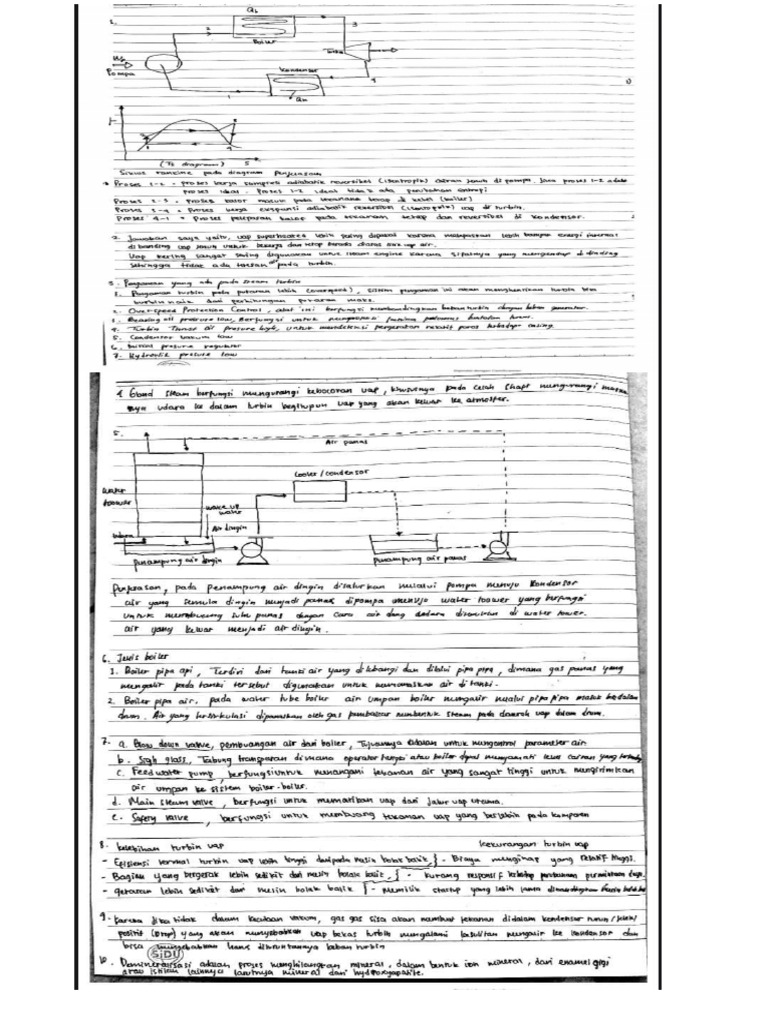 1.
Qb
Boiler
2
3
Turbin
Wp
Pompa
Kondensor
4
1
Qk
T
(Ts diagram) S
Siklus rankine pada diagram
Proses 1-2 = proses kerja kompresi adiabatik reversibel (isentropik) cairan jenuh di pompa. Jadi proses 1-2 adalah
proses ideal. Proses 1-2 ideal tidak ada perubahan entropi
Proses 2-3 = Proses kalor masuk pada tekanan tetap di ketel (boiler)
Proses 3-4 = Proses kerja ekspansi adiabatik reversibel (isentropik) uap di turbin.
Proses 4-1 = Proses pelepasan kalor pada tekanan tetap dan reversibel di kondensor.
2. Jawaban saya yaitu, uap superheated lebih sering dipakai karena menyimpan lebih banyak energi internal
dibanding uap jenuh untuk bekerja dan tetap berada diatas titik uap air.
Uap kering sangat sering digunakan untuk steam engine karena sifatnya yang mengendap di dinding
sehingga tidak ada tetesan air pada turbin.
3. Pengaman yang ada pada steam turbin
1. Pengaman turbin pada putaran lebih (overspeed), sistem pengaman ini akan menghentikan turbin bila
turbin naik dari perhitungan putaran maks.
2. Overspeed Protection Control, alat ini berfungsi membandingkan beban turbin dengan beban generator.
3. Bearing oil pressure low, Berfungsi untuk
4. Turbin Thrust oil presure high, untuk mendeteksi pergerakan relatif poros terhadap casing.
5. Condensor vakum low
6. Initial presure regulator
7. Hydrolik presure low
4 Gland steam berfungsi mengurangi kebocoran uap, khususnya pada celah shaft mengurangi masuk
nya udara ke dalam turbin begitupun uap yang akan keluar ke atmosfer.
5.
Air panas
Cooler/condensor
water
toower
make up
water
Air dingin
Penampung air dingin
Penampung air panas
Penjelasan, pada penampung air dingin disalurkan melalui pompa menuju kondensor
air yang semula dingin menjadi panas dipompa menuju water toower yang berfungsi
untuk membuang suhu panas dengan cara air dang udara disatukan di water tower.
air yang keluar menjadi air dingin.
6. Jenis boiler
1. Boiler pipa api, Terdiri dari tanki air yang dilubangi dan dilalui pipa pipa, dimana gas panas yang
mengalir pada tanki tersebut digunakan untuk memanaskan air di tanki.
2. Boiler pipa air, pada water tube boiler air umpan boiler mengalir melalui pipa pipa masuk kedalam
drum. Air yang tersirkulasi dipanaskan oleh gas pembakar membentuk steam pada daerah uap dalam drum.
7. a. Blow down valve, pembuangan air dari boiler, Tujuannya adalah untuk mengontrol parameter air
b. Sigh glass, Tabung transparan dimana operator tangki atau boiler dpat mengamati level cairan yang
c. Feedwater pump, berfungsi untuk menangani tekanan air yang sangat tinggi untuk mengirimkan
air umpan ke sistem boiler-boiler.
d. Main steam valve, berfungsi untuk mematikan uap dari jalur uap utama.
e. Safety valve, berfungsi untuk membuang tekanan uap yang berlebih pada komponen
8. Kelebihan turbin uap Kekurangan turbin uap
- Efisiensi termal turbin uap lebih tinggi daripada mesin bolak balik, - Biaya menginap yang relatif tinggi.
- Bagian yang bergerak lebih sedikit dari mesin bolak balik, - kurang responsif terhadap perubahan permintaan daya.
- getaran lebih sedikit dari mesin bolak balik - memiliki startup yang lebih lama dibandingkan
9. karena jika tidak dalam keadaan vakum, gas gas sisa akan membuat tekanan didalam kondensor
positif (Drop) yang akan menyebabkan uap bekas turbin mengalami kesulitan mengalir ke kondensor dan
bisa menyebabkan harus diturunkannya beban turbin
SIDU
10. Demineralisasi adalah proses menghilangkan mineral, dalam bentuk ion mineral, dari enamel gigi
atau istilah lainnya larutnya mineral dari hydroxyapatite.